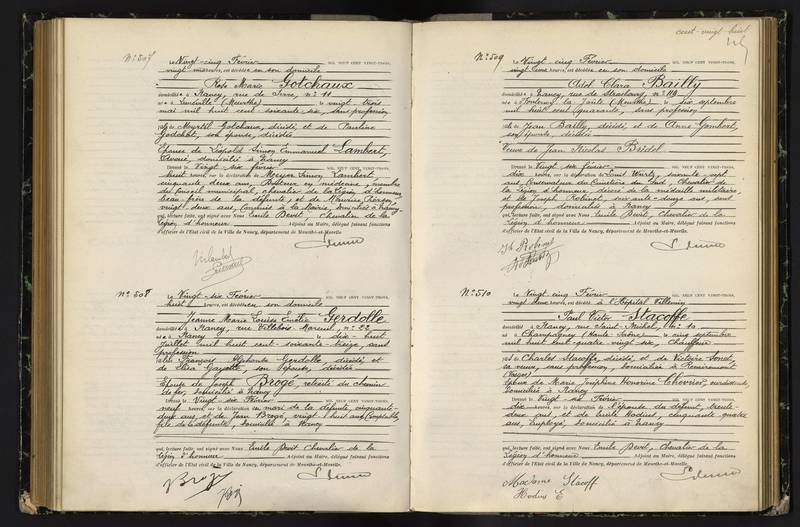 cent-vingt-huit
N° 507
Le Vingt-cinq Février MIL NEUF CENT VINGT-TROIS,
vingt heures, est décédée en son domicile
Rose Marie Gotchaux
domiciliée à Nancy, rue de Serre, n° 11
née à Lunéville (Meurthe) le vingt trois
mai mil huit cent soixante-six, sans profession
fille de Meyrtil Gotchaux, décédé, et de Pauline
Godchot, son épouse, décédée
Épouse de Léopold Simon Emmanuel Lambert,
avoué, domicilié à Nancy
Dressé le Vingt six février MIL NEUF CENT VINGT-TROIS,
huit heures, sur la déclaration de Simon Lambert,
cinquante deux ans, Docteur en médecine, membre
du Conseil municipal, chevalier de la Légion d'honneur,
beau-frère de la défunte, et de Maurice
vingt deux ans, Commis à la Mairie, domiciliés à Nancy
qui, lecture faite, ont signé avec Nous Emile Devit, Chevalier de la
Légion d'honneur Adjoint au Maire, délégué faisant fonctions
d'officier de l'État civil de la Ville de Nancy, département de Meurthe-et-Moselle.
N° 508
Le Vingt-six Février MIL NEUF CENT VINGT-TROIS,
huit heures, est décédée en son domicile
Jeanne Marie Louise Emélie Gerdolle
domiciliée à Nancy, rue Villebois-Mareuil, n° 22
née à Nancy le dix-huit
Juillet mil huit cent soixante-treize, sans
profession
fille de François Alphonse Gerdolle, décédé, et
de Gayotte, son épouse, décédée
Épouse de Joseph Brogé, retraité du chemin
de fer, domicilié à Nancy
Dressé le Vingt six Février MIL NEUF CENT VINGT-TROIS,
neuf heures, sur la déclaration du mari de la défunte, cinquante-
deux ans, et de Jean Brogé, vingt huit ans, Comptable,
fils de la défunte, domicilié à Nancy
qui, lecture faite, ont signé avec Nous Emile Devit Chevalier de la
Légion d'honneur Adjoint au Maire, délégué faisant fonctions
d'officier de l'État civil de la Ville de Nancy, département de Meurthe-et-Moselle.
N° 509
Le Vingt cinq Février MIL NEUF CENT VINGT-TROIS,
vingt heures, est décédée en son domicile
Clara Bailly
domiciliée à Nancy, rue de Strasbourg, n° 119
née à Fontenoy la Joûte (Meurthe) le six septembre
mil huit cent quarante, sans profession
fille de Jean Bailly, décédé, et de Anne Gambert,
son épouse, décédée
Veuve de Jean Nicolas Bridel
Dressé le Vingt six février MIL NEUF CENT VINGT-TROIS,
dix heures, sur la déclaration de Louis Wirtz, soixante-sept
ans, Conservateur du Cimetière du Sud, Chevalier de
la Légion d'honneur, décoré de la médaille militaire
et de Joseph Robinet, soixante-douze ans, sans
profession, domiciliés à Nancy
qui, lecture faite, ont signé avec Nous Emile Devit, Chevalier de la
Légion d'honneur Adjoint au Maire, délégué faisant fonctions
d'officier de l'État civil de la Ville de Nancy, département de Meurthe-et-Moselle.
N° 510
Le Vingt cinq Février MIL NEUF CENT VINGT-TROIS,
vingt heures, est décédé à l'Hôpital Villemin
Paul Victor Stacoffe
domicilié à Nancy, rue Saint-Michel, n° 10
né à Champagney (Haute Saône) le cinq septembre
mil huit cent quatre vingt six, Chauffeur
fils de Charles Stacoffe, décédé, et de Victoire
sa veuve, sans profession, domiciliée à Remiremont
(Vosges)
Époux de Marie Joséphine Honorine
domiciliée à Nancy
Dressé le Vingt six Février MIL NEUF CENT VINGT-TROIS,
dix heures, sur la déclaration de l'épouse du défunt, trente-
deux ans, et de Emile Hodin, cinquante quatre
ans, employé, domicilié à Nancy
qui, lecture faite, ont signé avec Nous Emile Devit, Chevalier de la
Légion d'honneur Adjoint au Maire, délégué faisant fonctions
d'officier de l'État civil de la Ville de Nancy, département de Meurthe-et-Moselle.
Madame Stacoff
Hodin E